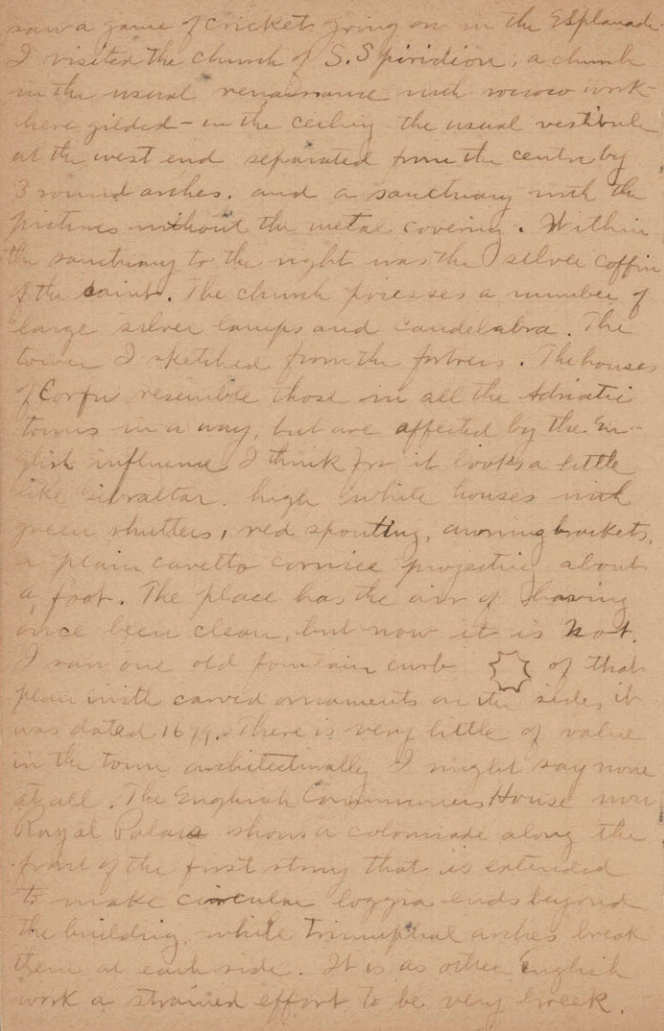 saw a game of cricket going on in the Esplanade
I visited the church of S. Spiridione, a church
in the usual renaissance with rococo work
here gilded - in the ceiling the usual vestibule
at the west end separated from the centre by
3 round arches. and a sanctuary with the
pictures without the metal covering. Within
the sanctuary to the right was the silver coffin
of the saint. The church posesses a number of
large silver lamps and candelabra. The
tower I sketched from the fortress. The houses
of Corfu resemble those in all the Adriatic
towns in a way, but are affected by the En-
glish influence I think for it looks a little
like Gibraltar. high white houses with
green shutters, red spouting, awning brackets,
a plain cavetto cornice projecting about
a foot. The place has the air of having
once been clean, but now it is not.
I saw one old fountain curb of that
plan with carved ornaments on the side, it
was dated 1679. There is very little of value
in the town architecturally I might say none
at all. The English Commissioners House now
Royal Palace shows a colonnade along the
front of the first story that is extended
to make circular loggia ends beyond
the building, while triumphal arches break
them at each side. It is as other English
work a strained effort to be very Greek.